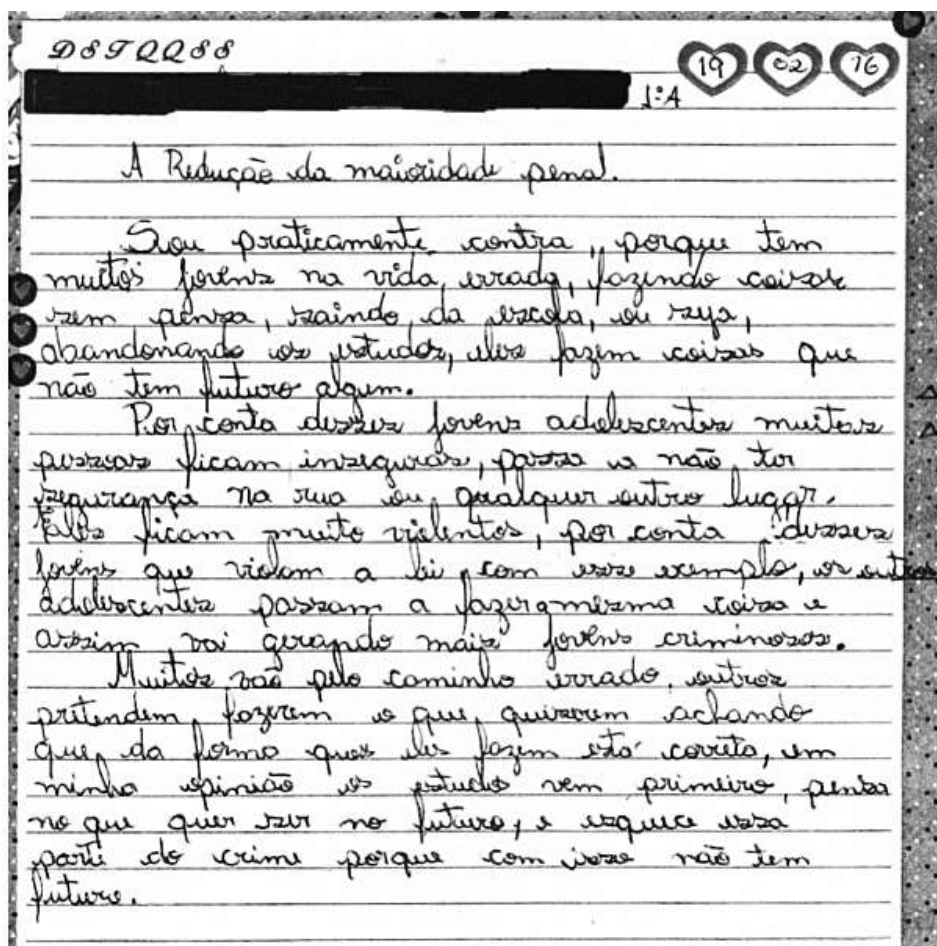 D S T Q Q S S
19 02 16
1ºA
A Redução da maioridade penal.
Sou praticamente contra, porque tem
muitos jovens na vida errada, fazendo coisas
sem pensa, saindo da escola, ou seja,
abandonando os estudos, eles fazem coisas que
não tem futuro algum.
Por conta desses jovens adolescentes muitas
pessoas ficam inseguras, passa a não ter
segurança na rua ou qualquer outro lugar.
Eles ficam muito violentos, por conta desses
jovens que violam a lei, com esse exemplo, os outros
adolescentes passam a fazer a mesma coisa e
assim vai gerando mais jovens criminosos.
Muitos vão pelo caminho errado, outros
pretendem fazerem o que quiserem achando
que da forma que eles fazem está correto, em
minha opinião os estudo vem primeiro, pensa
no que quer ser no futuro, e esquece essa
parte do crime porque com isso não tem
futuro.